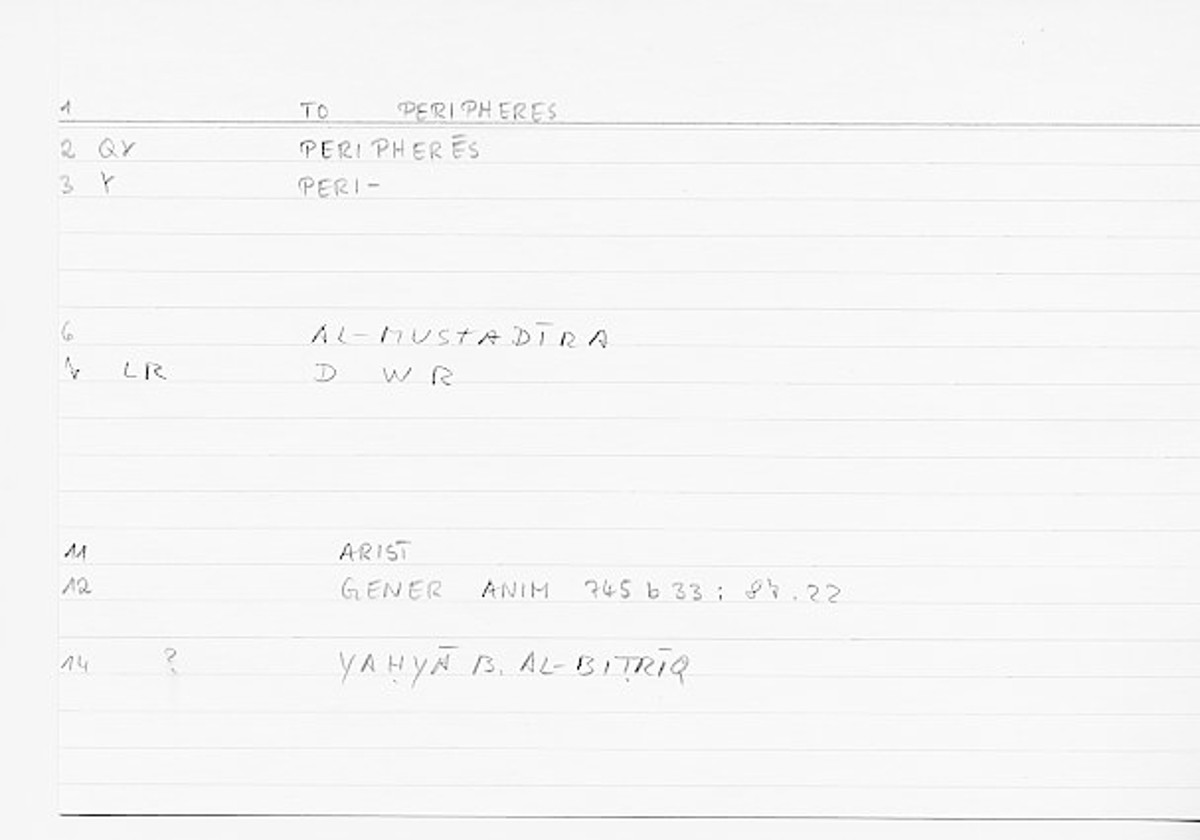 1 TO PERIPHERES
2 QY PERIPHERĒS
3 Y PERI-
6 AL-MUSTADĪRA
LR D W R
11 ARIST
12 GENER ANIM 745 b 33 ; 87.22
14 ? YAḤYĀ B. AL-BIṬRĪQ